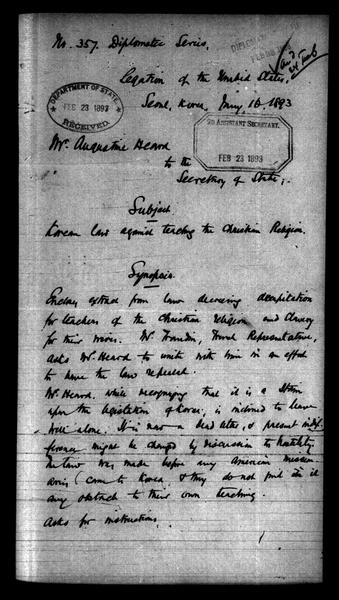 No. 357. Diplomatic Series.
DIPLOMATIC
FEB
Legation of the United States,
Seoul, Korea, Jany 10. 1893
DEPARTMENT OF STATE,
FEB 23 1893
RECEIVED.
2D ASSISTANT SECRETARY.
FEB 23 1893
Mr. Augustine Heard
to the
Secretary of State;
Subject
Korean law against teaching the Christian Religion.
Synopsis.
Encloses extract from law decreeing decapitation
for teachers of the Christian religion and slavery
for their wives. Mr. Frandin, French Representative,
asks Mr. Heard to unite with him in an effort
to have the law repealed.
Mr. Heard, while recognizing that it is a stain
upon the legislation of Korea, is inclined to leave
well alone. It is now a dead letter, & present indif-
ference might be changed by discussion to hostility.
The law was made before any American mission-
aries came to Korea, & they do not find in it
any obstacle to their own teaching.
Asks for instructions.